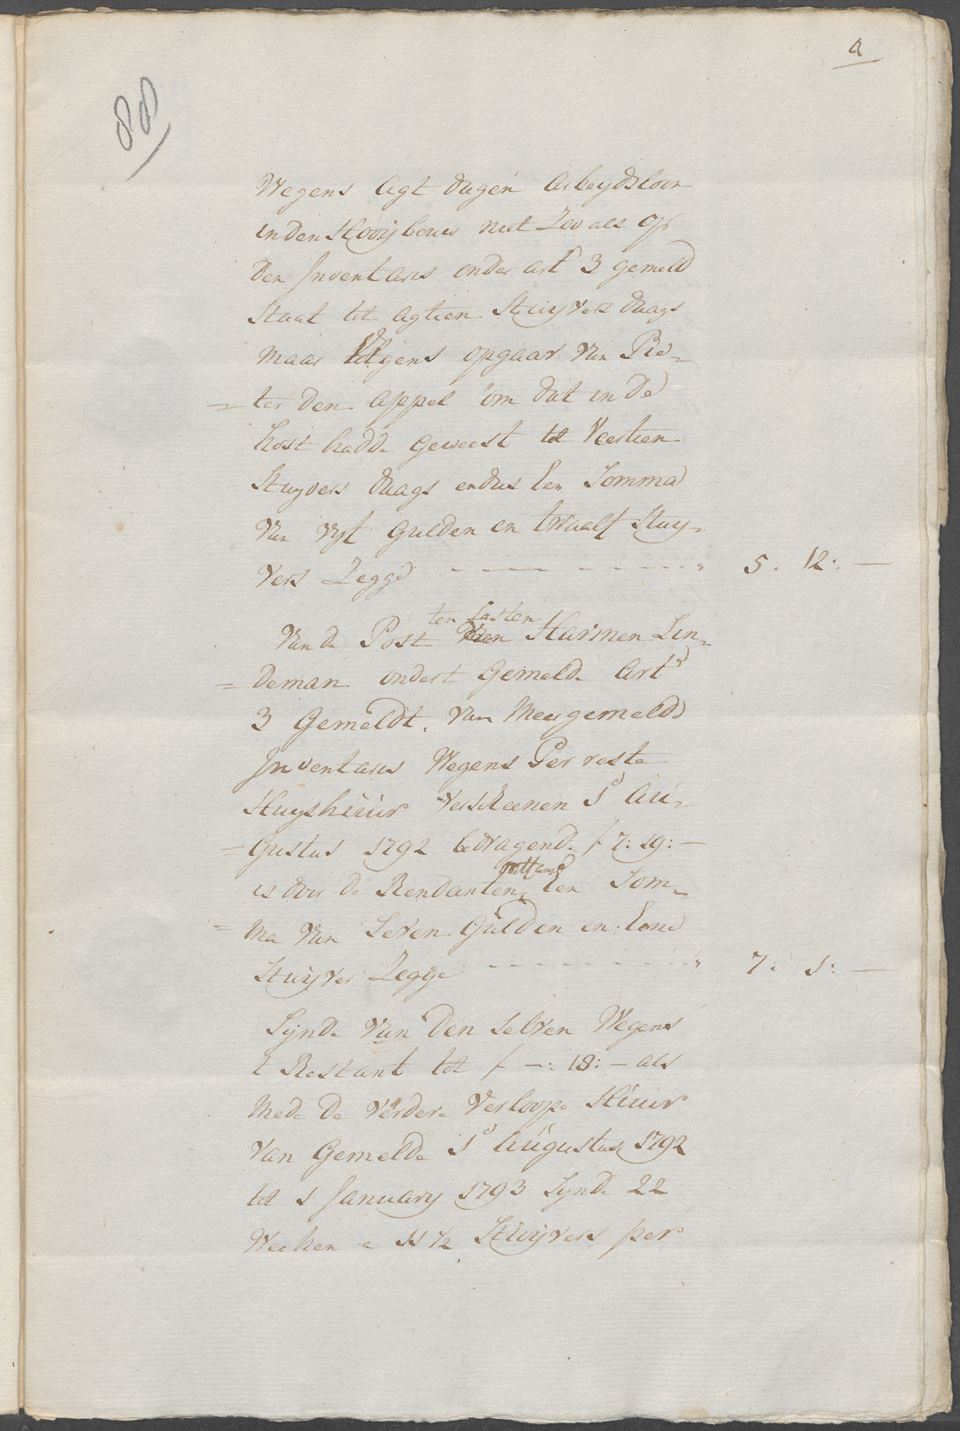 a
88
Wegens Agt dagen Arbeydsloon
in den Hooijbouw niet Zoo als op
den Inventaris onder art 3 gemeld
Staat tot agtien Stuyvers daags
maar Volgens opgaav van Pie-
= ter den Appel om dat in de
kost hadde geweest tot Veertien
Stuyvers daags en dus Een Somma
Van Vyf Gulden en twaalf Stuy-
vers Zegge - - - - - " 5. 12: —
ten Lasten
Van de Post Harmen Lin-
= deman ondert Gemelde Art
3 Gemeldt. Van Meergemelde
Inventaris Wegens Per reste
Huyshuur Verscheenen 1 Au-
= Gustus 1792 bedragende f 7: 19: —
ontfangen
is door de Rendanten Een Som-
= Ma Van Seven Gulden en Eene
Stuyver Zegge - - - - - " 7. 1: —
Synde Van den Selven Wegens
t Restant tot f —: 18: — als
Mede De Verdere Verloope Huur
Van Gemelde 1 Augustus 1792
tot 1 January 1793 Synde 22
Weeken a 11 1/2 Stuyvers per